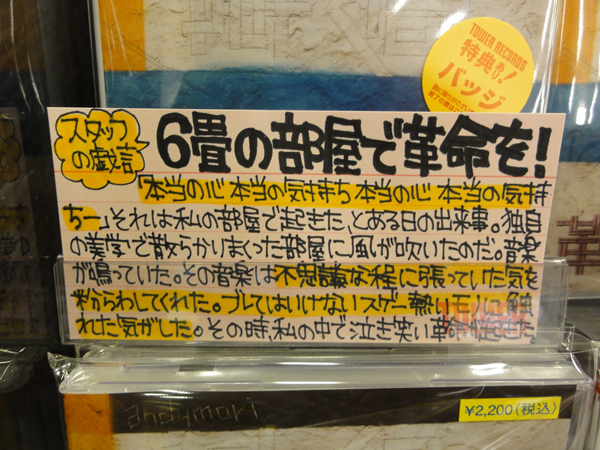 TOWER RECORDS
特典あり!
バッジ
スタッフ
の戯言
6畳の部屋で革命を!
「本当の心 本当の気持ち 本当の心 本当の気持
ちー」それは私の部屋で起きた、とある日の出来事。独自
の美学で散らかりまくった部屋に風が吹いたのだ。音楽
が鳴っていた。その音楽は不思議な程に張っていた気を
紛らわしてくれた。ブレてはいけないスゲー熱いモノに触
れた気がした。その時、私の中で泣き笑い革命が起きた。
andymori
¥2,200(税込)